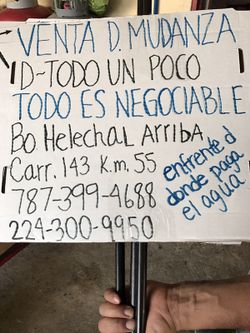 VENTA D. MUDANZA
D-TODO UN POCO
TODO ES NEGOCIABLE
Bo Helechal Arriba
Carr. 143 K.m. 55
787-399-4688
224-300-9950
enfrente d
donde paga
el agua